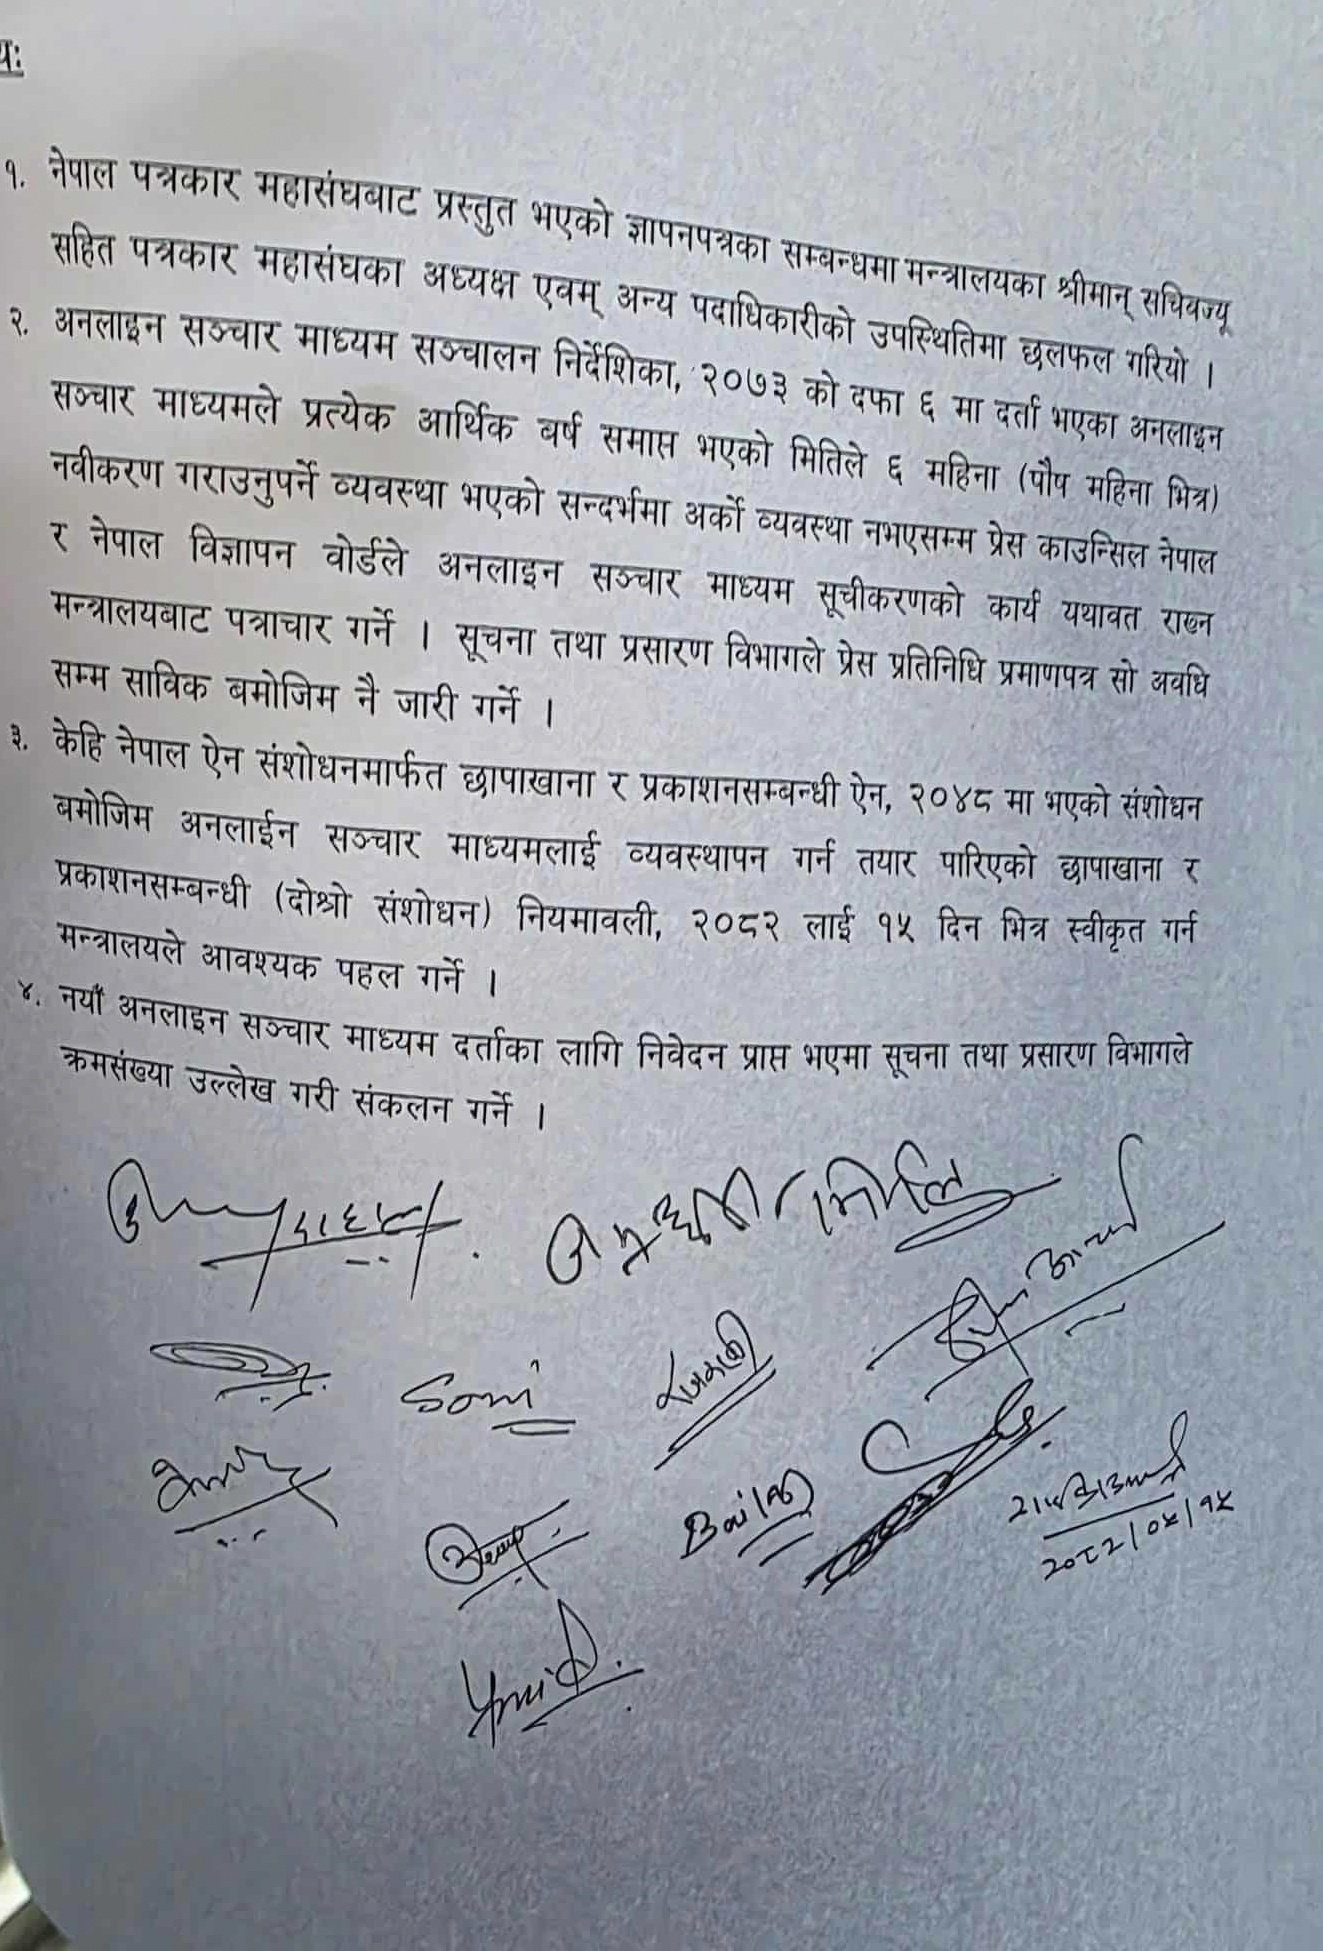 यः
१. नेपाल पत्रकार महासंघबाट प्रस्तुत भएको ज्ञापनपत्रका सम्बन्धमा मन्त्रालयका श्रीमान् सचिवज्यू
सहित पत्रकार महासंघका अध्यक्ष एवम् अन्य पदाधिकारीको उपस्थितिमा छलफल गरियो ।
२. अनलाइन सञ्चार माध्यम सञ्चालन निर्देशिका, २०७३ को दफा ६ मा दर्ता भएका अनलाइन
सञ्चार माध्यमले प्रत्येक आर्थिक बर्ष समाप्त भएको मितिले ६ महिना (पौष महिना भित्र)
नवीकरण गराउनुपर्ने व्यवस्था भएको सन्दर्भमा अर्को व्यवस्था नभएसम्म प्रेस काउन्सिल नेपाल
र नेपाल विज्ञापन वोर्डले अनलाइन सञ्चार माध्यम सूचीकरणको कार्य यथावत राख्न
मन्त्रालयबाट पत्राचार गर्ने । सूचना तथा प्रसारण विभागले प्रेस प्रतिनिधि प्रमाणपत्र सो अवधि
सम्म साविक बमोजिम नै जारी गर्ने ।
३. केहि नेपाल ऐन संशोधनमार्फत छापाखाना र प्रकाशनसम्बन्धी ऐन, २०४८ मा भएको संशोधन
बमोजिम अनलाईन सञ्चार माध्यमलाई व्यवस्थापन गर्न तयार पारिएको छापाखाना र
प्रकाशनसम्बन्धी (दोश्रो संशोधन) नियमावली, २०८२ लाई १५ दिन भित्र स्वीकृत गर्न
मन्त्रालयले आवश्यक पहल गर्ने ।
४. नयाँ अनलाइन सञ्चार माध्यम दर्ताका लागि निवेदन प्राप्त भएमा सूचना तथा प्रसारण विभागले
क्रमसंख्या उल्लेख गरी संकलन गर्ने ।
२०८२/०५/१५